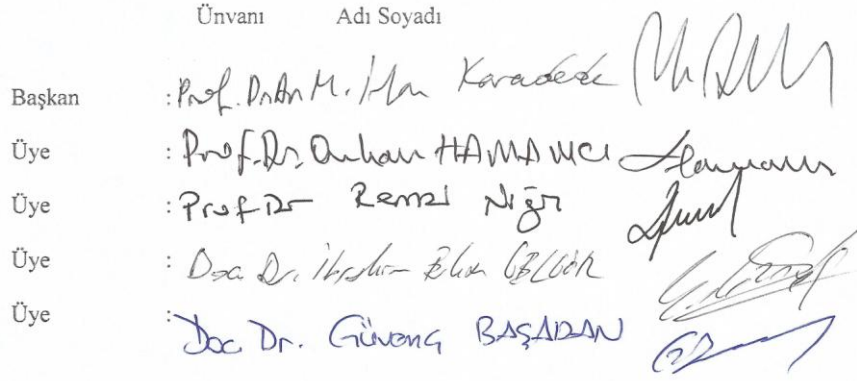 Ünvanı Adı Soyadı
Başkan : Prof. Dr. M. İrfan Karadede
Üye : Prof. Dr. Orhan HAMAMCI
Üye : Prof Dr Remzi Niğiz
Üye : Doç. Dr.
Üye : Doç. Dr. Güvenç BAŞARAN